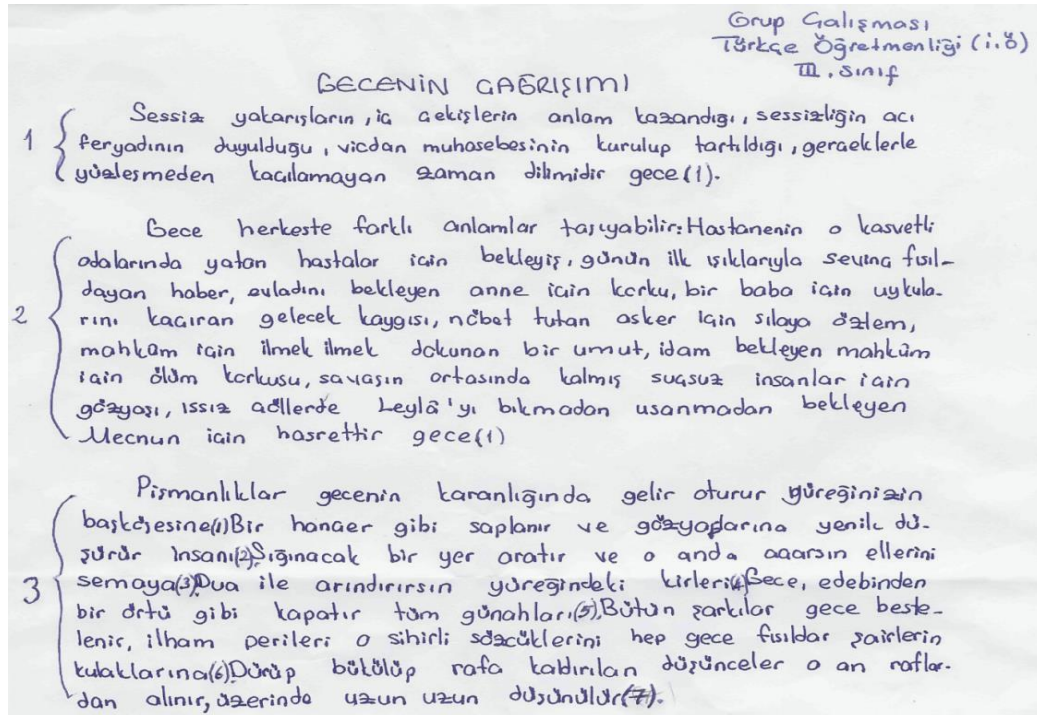 Grup Çalışması
Türkçe Öğretmenliği (i.ö)
III. sınıf
GECENİN ÇAĞRIŞIMI
1 Sessiz yakarışların, iç çekişlerin anlam kazandığı, sessizliğin acı
feryadının duyulduğu, vicdan muhasebesinin kurulup tartıldığı, gerçeklerle
yüzleşmeden kaçılamayan zaman dilimidir gece(1).
Gece herkeste farklı anlamlar taşıyabilir: Hastanenin o kasvetli
odalarında yatan hastalar için bekleyiş, günün ilk ışıklarıyla sevinç fısıl-
dayan haber, evladını bekleyen anne için korku, bir baba için uykula-
2 rını kaçıran gelecek kaygısı, nöbet tutan asker için sılaya özlem,
mahkûm için ilmek ilmek dokunan bir umut, idam bekleyen mahkûm
için ölüm korkusu, savaşın ortasında kalmış suçsuz insanlar için
gözyaşı, ıssız çöllerde Leylâ'yı bıkmadan usanmadan bekleyen
Mecnun için hasrettir gece(1)
Pişmanlıklar gecenin karanlığında gelir oturur yüreğinizin
başköşesine(1)Bir hançer gibi saplanır ve gözyaşlarına yenik dü-
şürür insanı(2).Sığınacak bir yer aratır ve o anda açarsın ellerini
3 semaya(3)Dua ile arındırırsın yüreğindeki kirleri(4)Gece, edebinden
bir örtü gibi kapatır tüm günahları(5).Bütün şarkılar gece beste-
lenir, ilham perileri o sihirli sözcüklerini hep gece fısıldar şairlerin
kulaklarına(6)Dürüp bükülüp rafa kaldırılan düşünceler o an rafla-
dan alınır, üzerinde uzun uzun düşünülür(7).